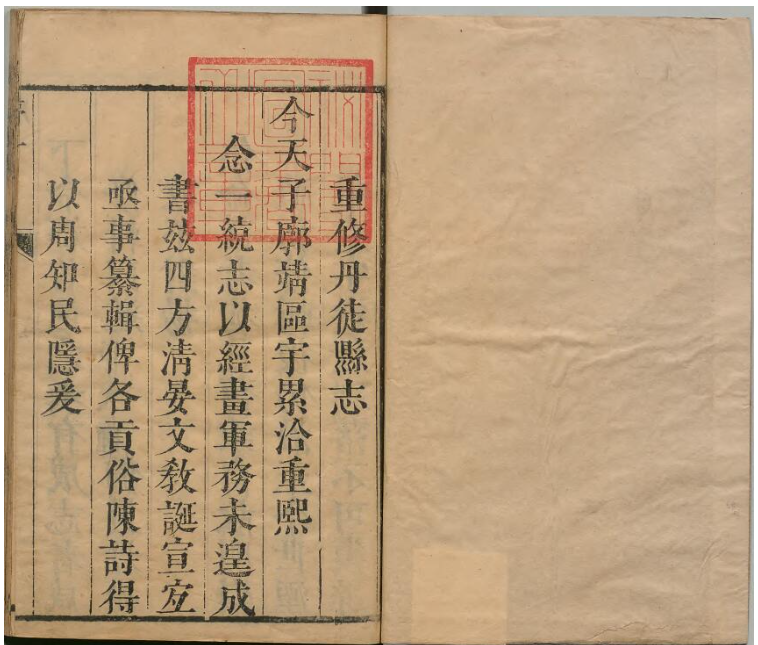 重修丹徒縣志
今天子廓靖區宇累洽重熙
念一統志以經畫軍務未遑成
書玆四方清晏文敎誕宣宐
亟事纂輯俾各貢俗陳詩得
以周知民隱爰